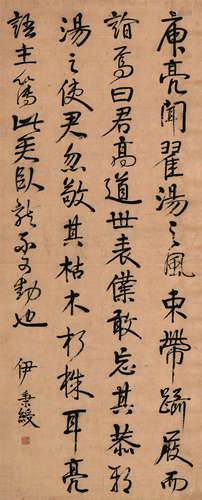 庾亮聞翟湯之風束帶躡履而
詣焉曰君高道世表僕敢忘其恭邪
湯之使君忽敬其枯木朽株耳亮
語主簿此臥龍不可動也
伊秉綬